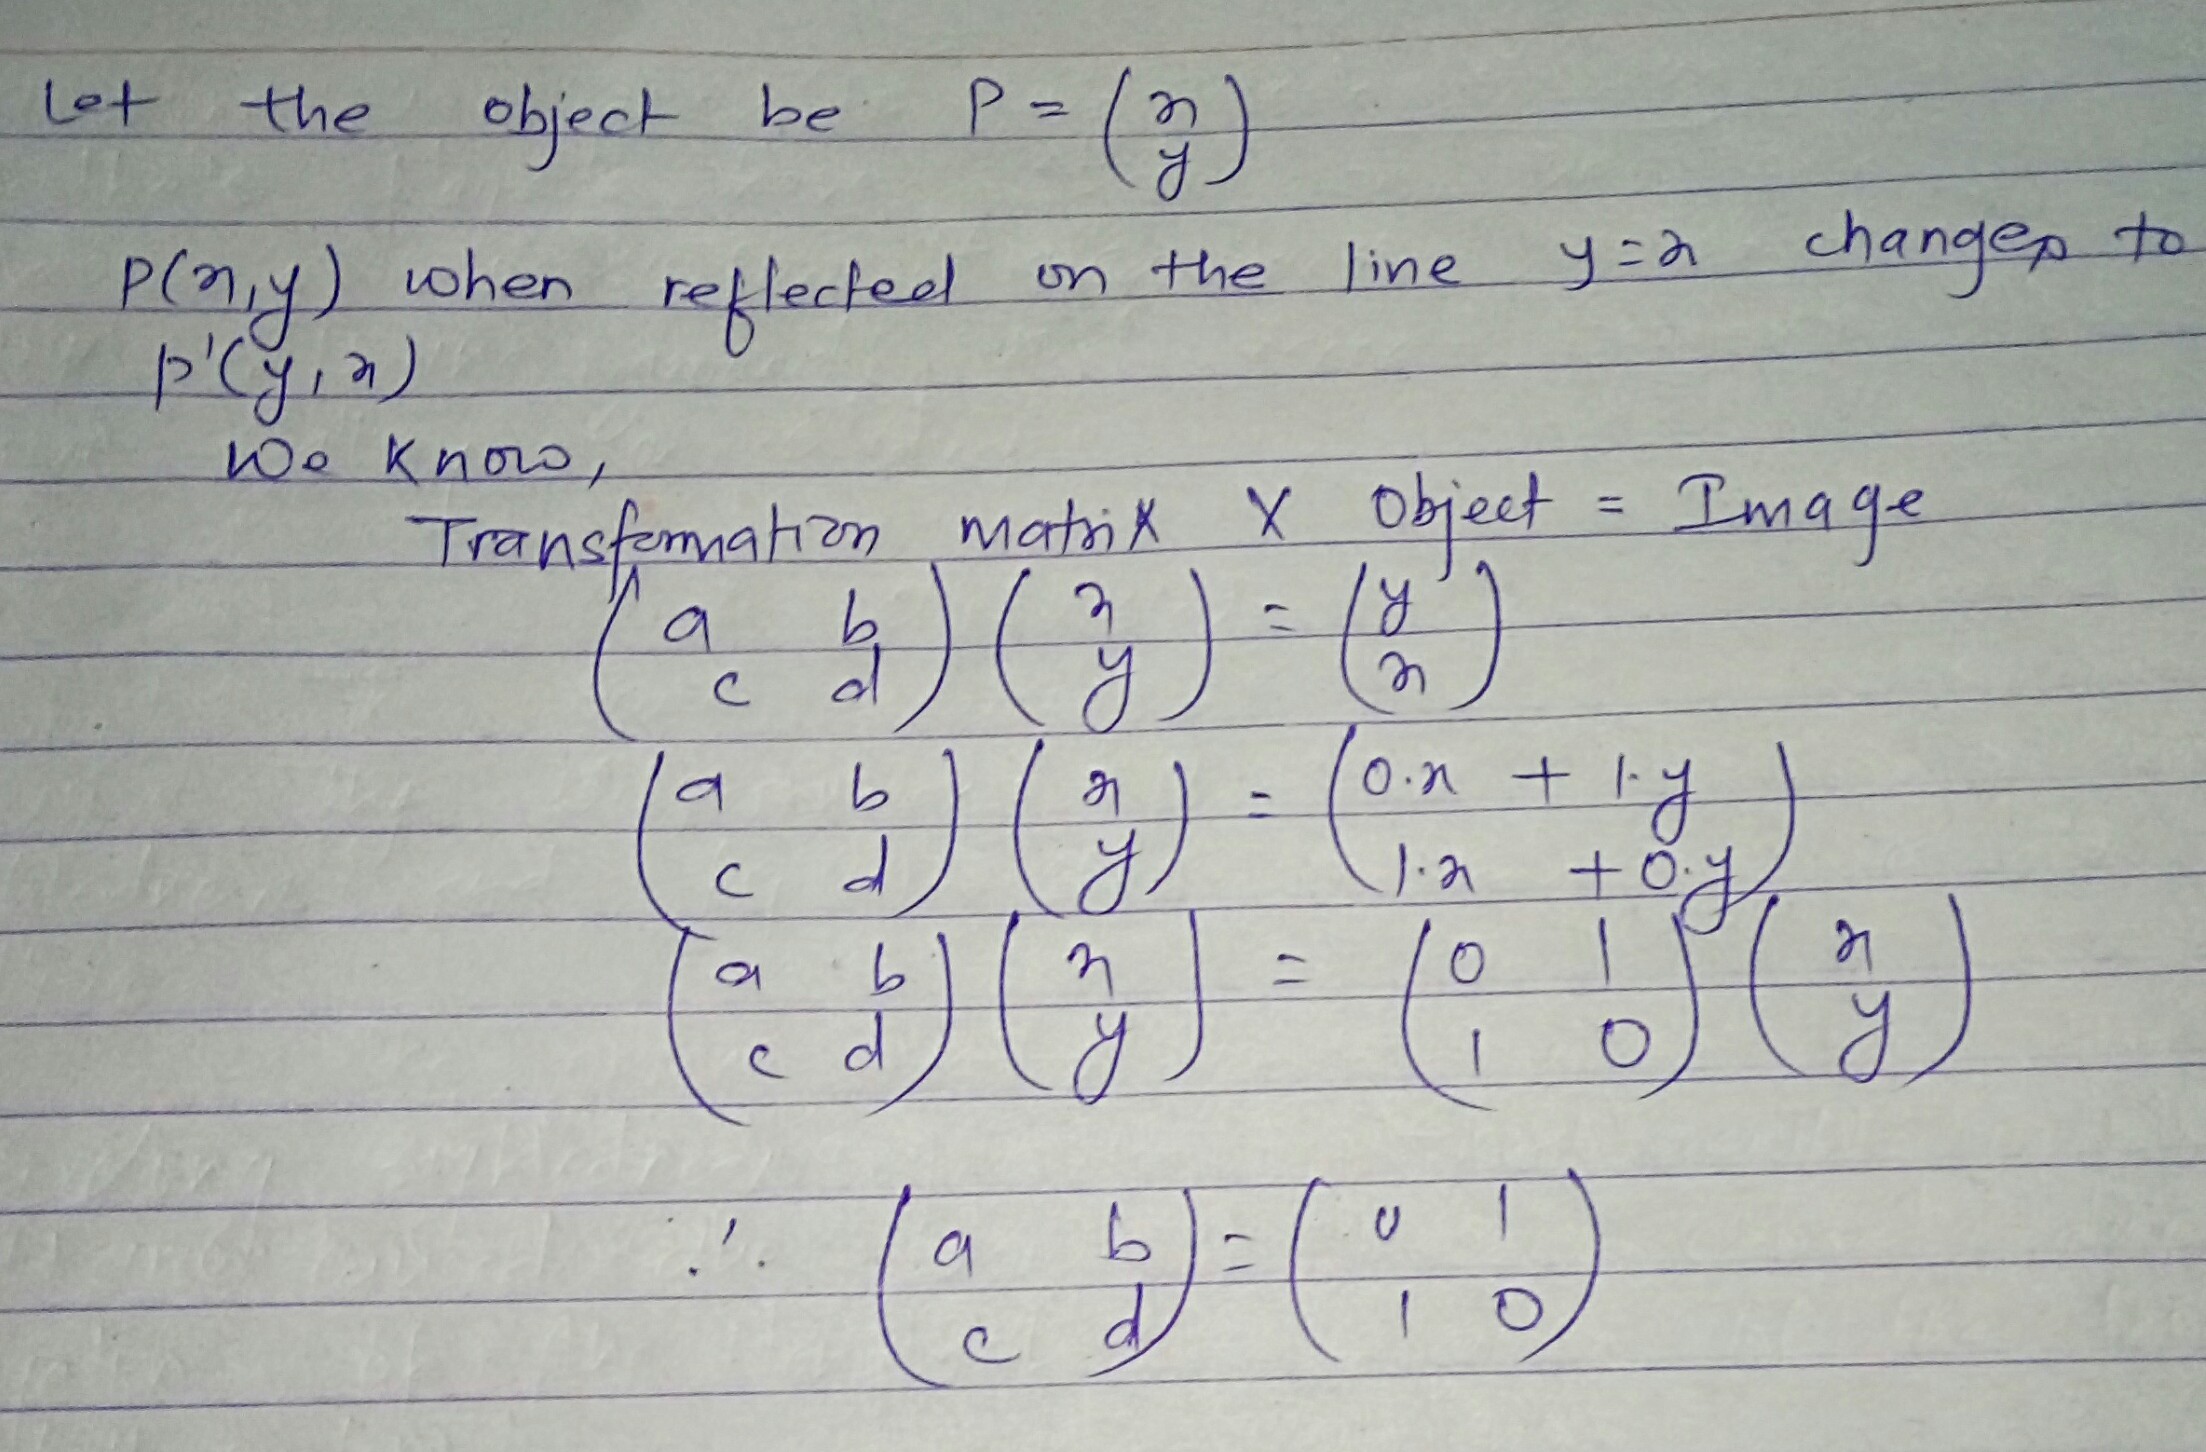 Let the object be P = (x y)
P(x,y) when reflected on the line y=x changes to
p'(y,x)
We know,
Transformation matrix X Object = Image
(a b c d) (x y) = (y x)
(a b c d) (x y) = (0.x + 1.y 1.x + 0.y)
(a b c d) (x y) = (0 1 1 0) (x y)
∴ (a b c d) = (0 1 1 0)